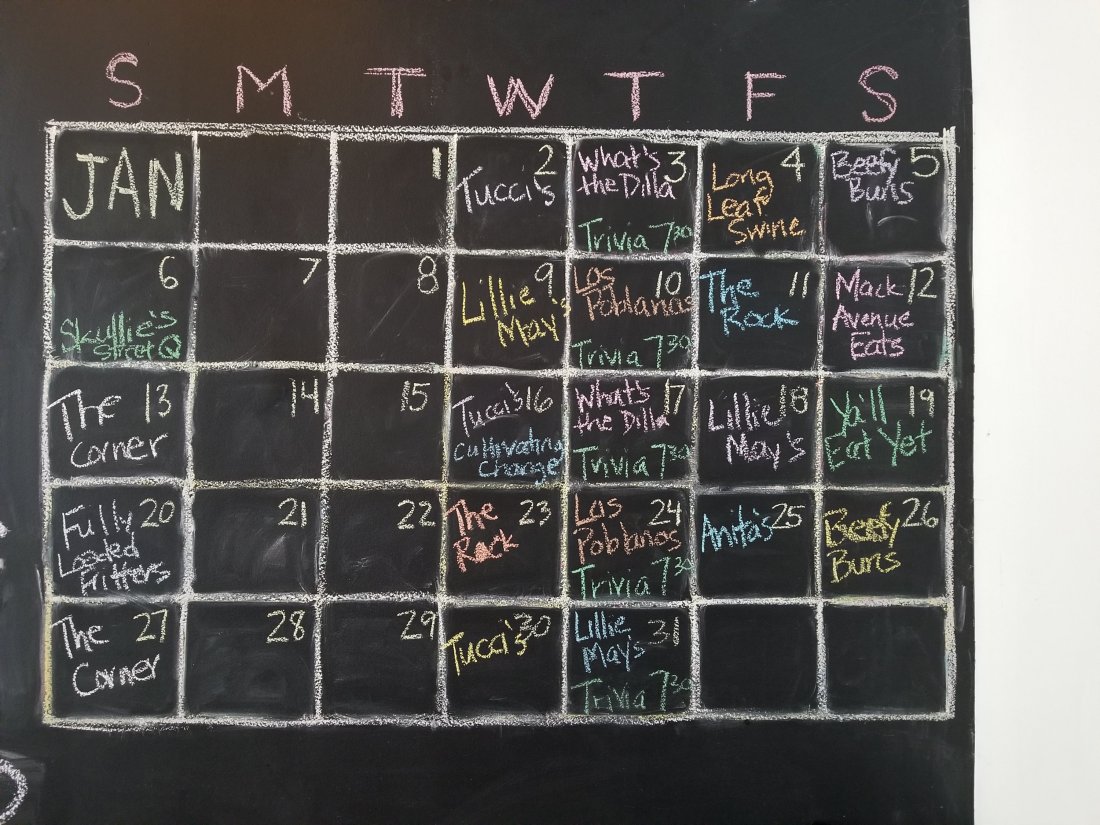 S M T W T F S
JAN
1
2
Tucci's
3
What's
the Dilla
Trivia 7³⁰
4
Long
Leaf
Swine
5
Beefy
Buns
6
Skullie's
Street Q
7
8
9
Lillie
May's
10
Las
Poblanas
Trivia 7³⁰
11
The
Rock
12
Mack
Avenue
Eats
13
The
Corner
14
15
16
Tucci's
Cultivating
Change
17
What's
the Dilla
Trivia 7³⁰
18
Lillie
May's
19
Ya'll
Eat Yet
20
Fully
Loaded
Fritters
21
22
23
The
Rock
24
Las
Poblanos
Trivia 7³⁰
25
Anita's
26
Beefy
Buns
27
The
Corner
28
29
30
Tucci's
31
Lillie
May's
Trivia 7³⁰